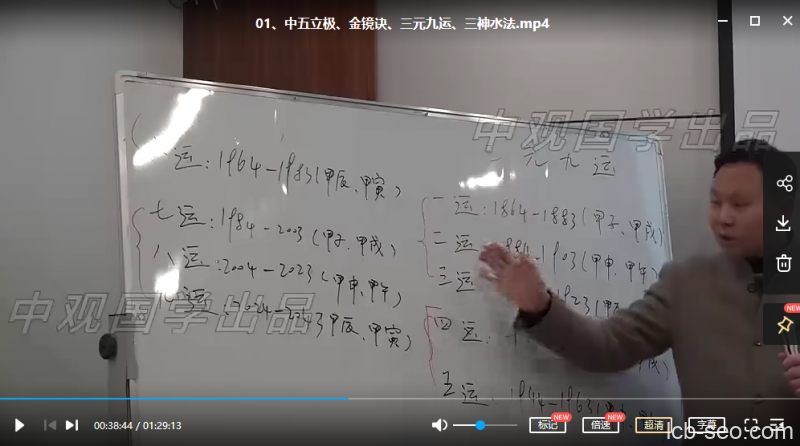 01、中五立极、金镜诀、三元九运、三神水法.mp4
中观国学出品
元九运
运:1964-1983(甲辰、甲寅)
七运:1984-2003(甲子、甲戌)
八运:2004-2023(甲申、甲午)
运:2024-2043甲辰、甲寅)
一运:1864-1883(甲子、甲戌)
二运 1903(甲申、甲午)
三运 1923(甲
四运
五运:1944-1963(
中观国学出品
NEW
00:38:44 / 01:29:13
标记
NEW
倍速
NEW
超清
字幕
lcb-seo.com